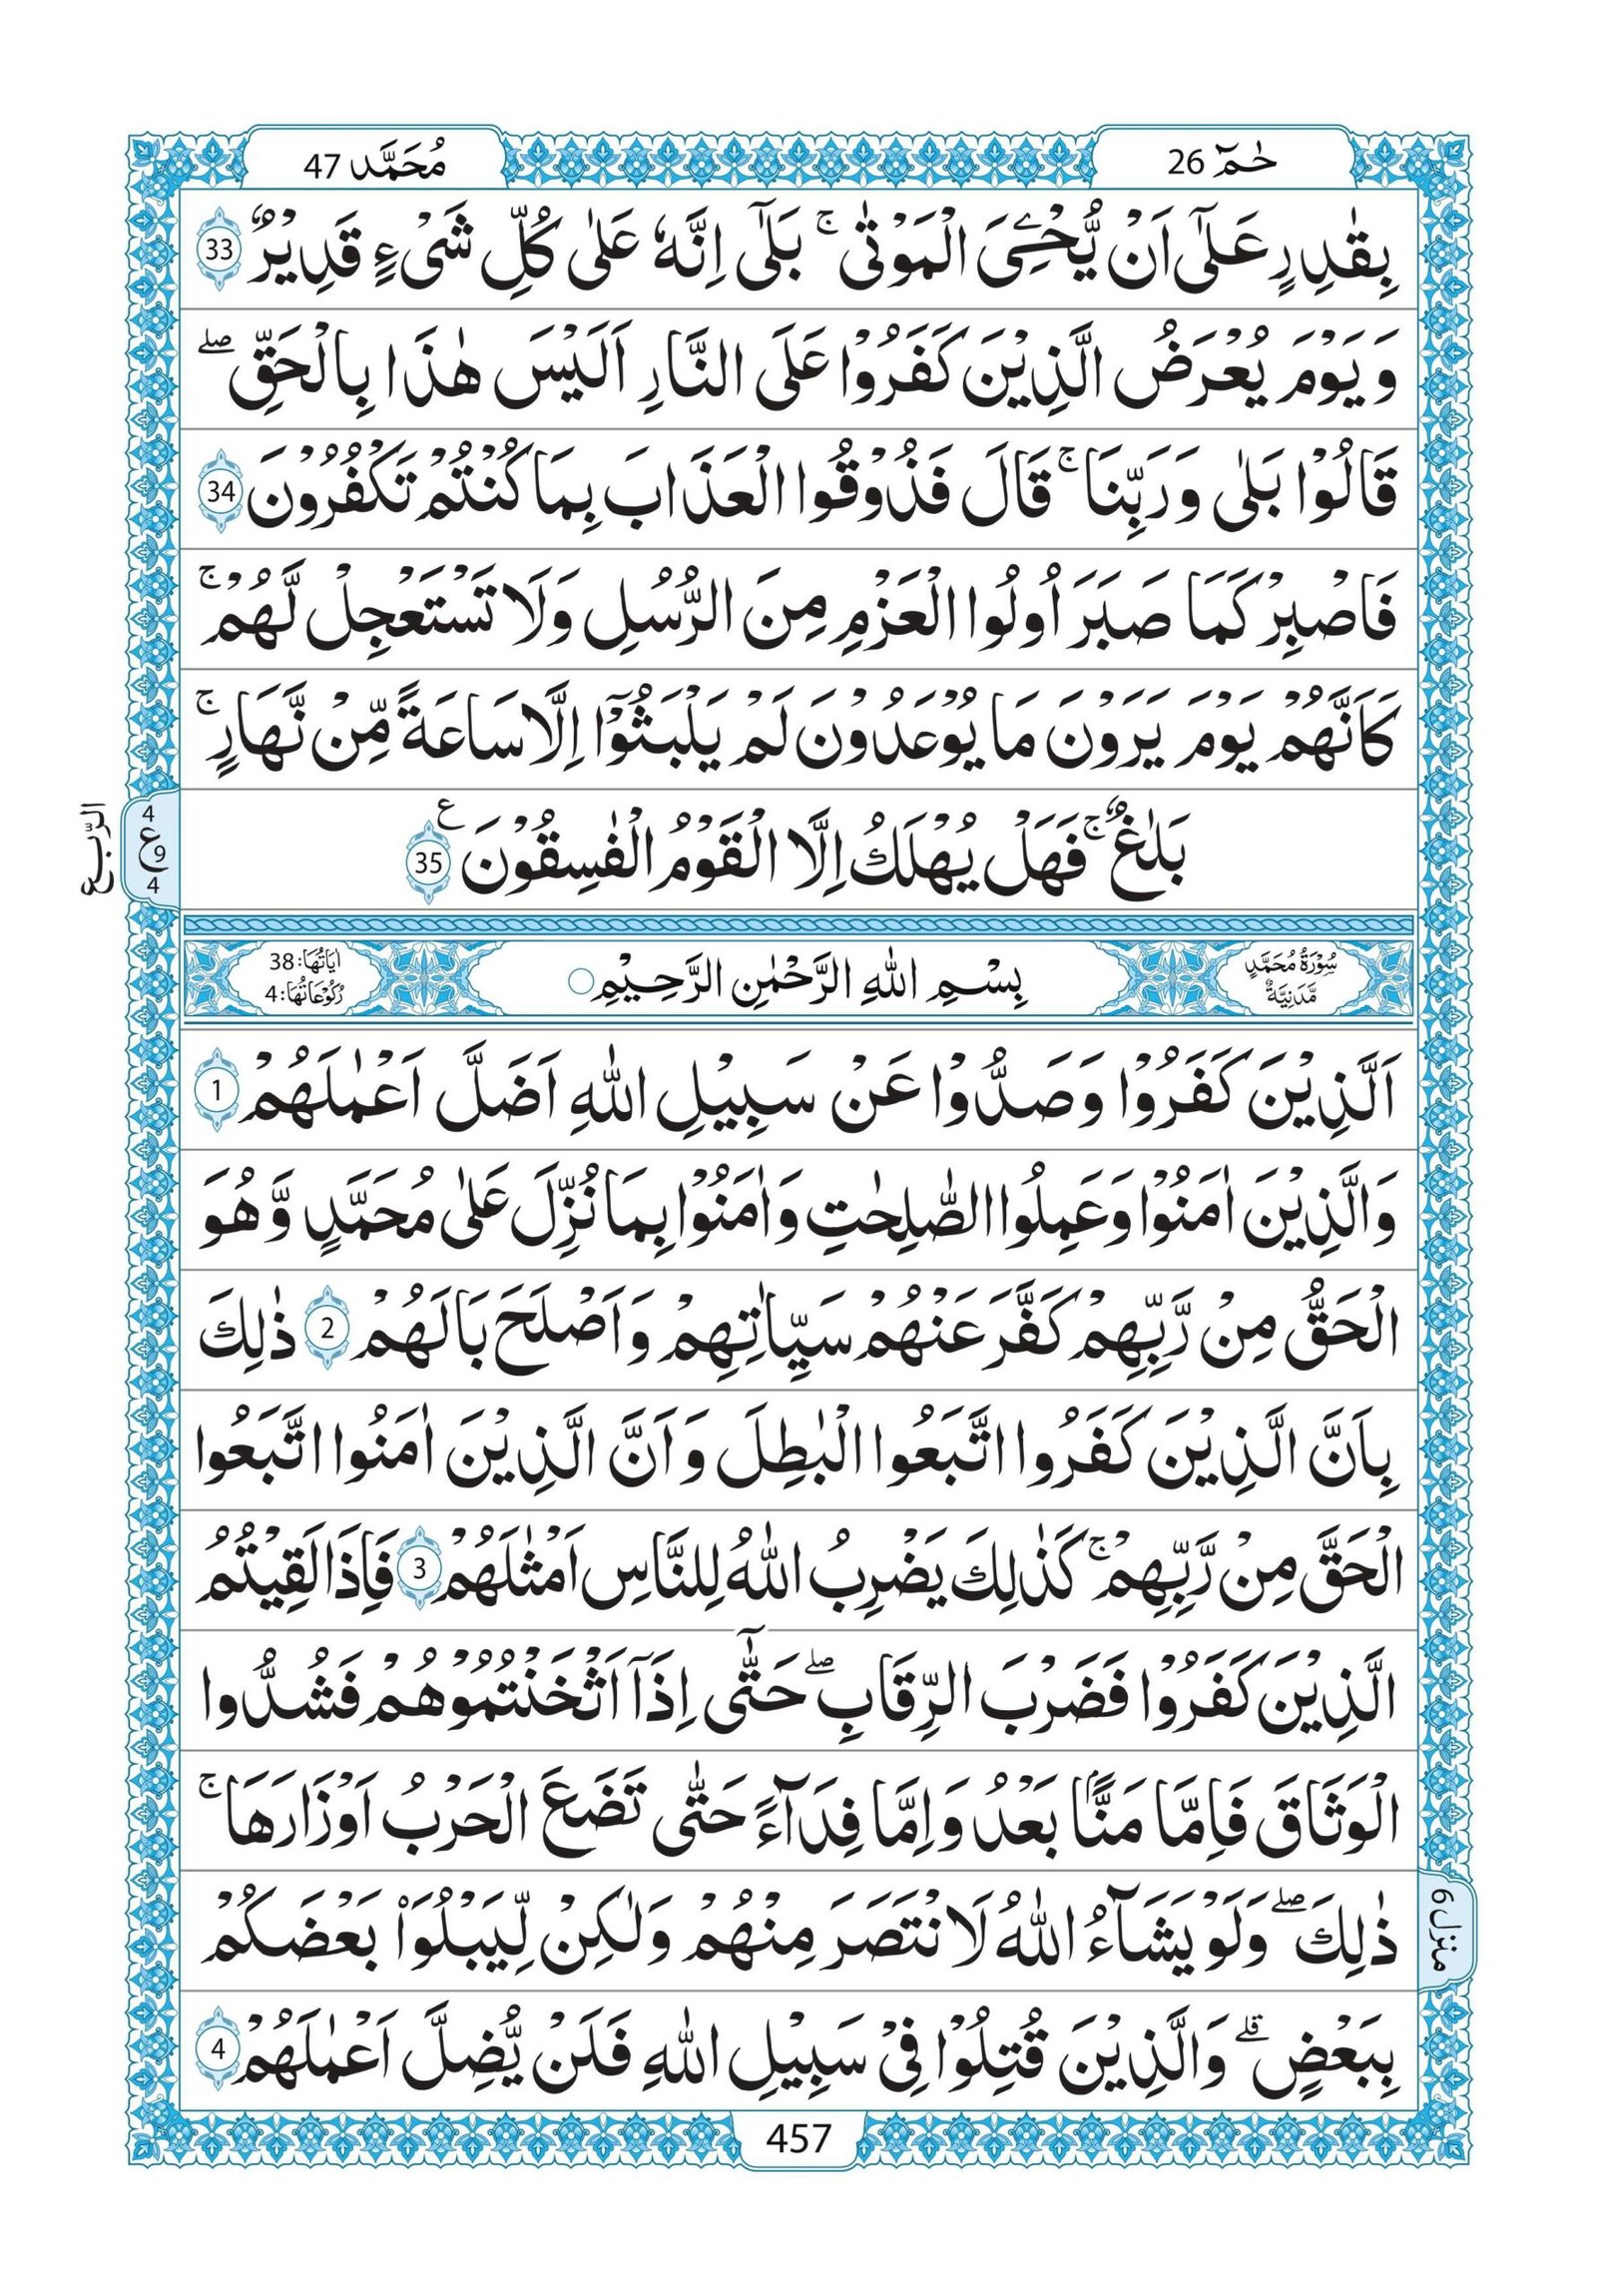 حٰمٓ 26
مُحَمَّد 47
بِقٰدِرٍ عَلٰٓى اَنْ يُّحْۓِيَ الْمَوْتٰى ۚ بَلٰٓى اِنَّهٗ عَلٰى كُلِّ شَىْءٍ قَدِيْرٌ 33
وَ يَوْمَ يُعْرَضُ الَّذِيْنَ كَفَرُوْا عَلَى النَّارِ اَلَيْسَ هٰذَا بِالْحَقِّ ۖ
قَالُوْا بَلٰى وَ رَبِّنَا ۚ قَالَ فَذُوْقُوا الْعَذَابَ بِمَا كُنْتُمْ تَكْفُرُوْنَ 34
فَاصْبِرْ كَمَا صَبَرَ اُولُوا الْعَزْمِ مِنَ الرُّسُلِ وَلَا تَسْتَعْجِلْ لَّهُمْ ۚ
كَاَنَّهُمْ يَوْمَ يَرَوْنَ مَا يُوْعَدُوْنَ لَمْ يَلْبَثُوْٓا اِلَّا سَاعَةً مِّنْ نَّهَارٍ ۚ
بَلٰغٌ ۚ فَهَلْ يُهْلَكُ اِلَّا الْقَوْمُ الْفٰسِقُوْنَ ع 35
الرّبع
4
ع 9
4
سُوْرَةُ مُحَمَّدٍ
مَّدَنِيَّةٌ
بِسْمِ اللهِ الرَّحْمٰنِ الرَّحِيْمِ
اٰيَاتُهَا: 38
رُكُوْعَاتُهَا: 4
اَلَّذِيْنَ كَفَرُوْا وَ صَدُّوْا عَنْ سَبِيْلِ اللهِ اَضَلَّ اَعْمٰلَهُمْ 1
وَالَّذِيْنَ اٰمَنُوْا وَ عَمِلُوا الصّٰلِحٰتِ وَ اٰمَنُوْا بِمَا نُزِّلَ عَلٰى مُحَمَّدٍ وَّ هُوَ
الْحَقُّ مِنْ رَّبِّهِمْ كَفَّرَ عَنْهُمْ سَيِّاٰتِهِمْ وَ اَصْلَحَ بَالَهُمْ 2 ذٰلِكَ
بِاَنَّ الَّذِيْنَ كَفَرُوا اتَّبَعُوا الْبٰطِلَ وَ اَنَّ الَّذِيْنَ اٰمَنُوا اتَّبَعُوا
الْحَقَّ مِنْ رَّبِّهِمْ ۚ كَذٰلِكَ يَضْرِبُ اللهُ لِلنَّاسِ اَمْثٰلَهُمْ 3 فَاِذَا لَقِيْتُمُ
الَّذِيْنَ كَفَرُوْا فَضَرْبَ الرِّقَابِ ۖ حَتّٰٓى اِذَآ اَثْخَنْتُمُوْهُمْ فَشُدُّوا
الْوَثَاقَ فَاِمَّا مَنًّۢا بَعْدُ وَ اِمَّا فِدَآءً حَتّٰى تَضَعَ الْحَرْبُ اَوْزَارَهَا ۚ
ذٰلِكَ ۖ وَلَوْ يَشَآءُ اللهُ لَانْتَصَرَ مِنْهُمْ وَلٰكِنْ لِّيَبْلُوَا۟ بَعْضَكُمْ
منزل 6
بِبَعْضٍ ۗ وَالَّذِيْنَ قُتِلُوْا فِىْ سَبِيْلِ اللهِ فَلَنْ يُّضِلَّ اَعْمٰلَهُمْ 4
457